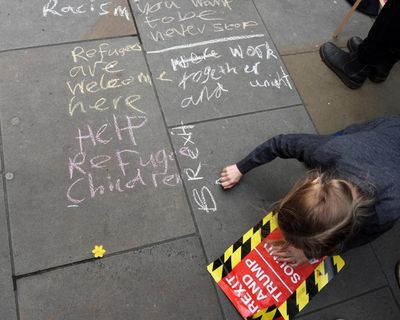 Racism
Refugees
are
welcome
here
Help
Refugee
Children
you want
to be
never stop
work
together
and unit
Brexit
BREXIT
AND
TRUMP